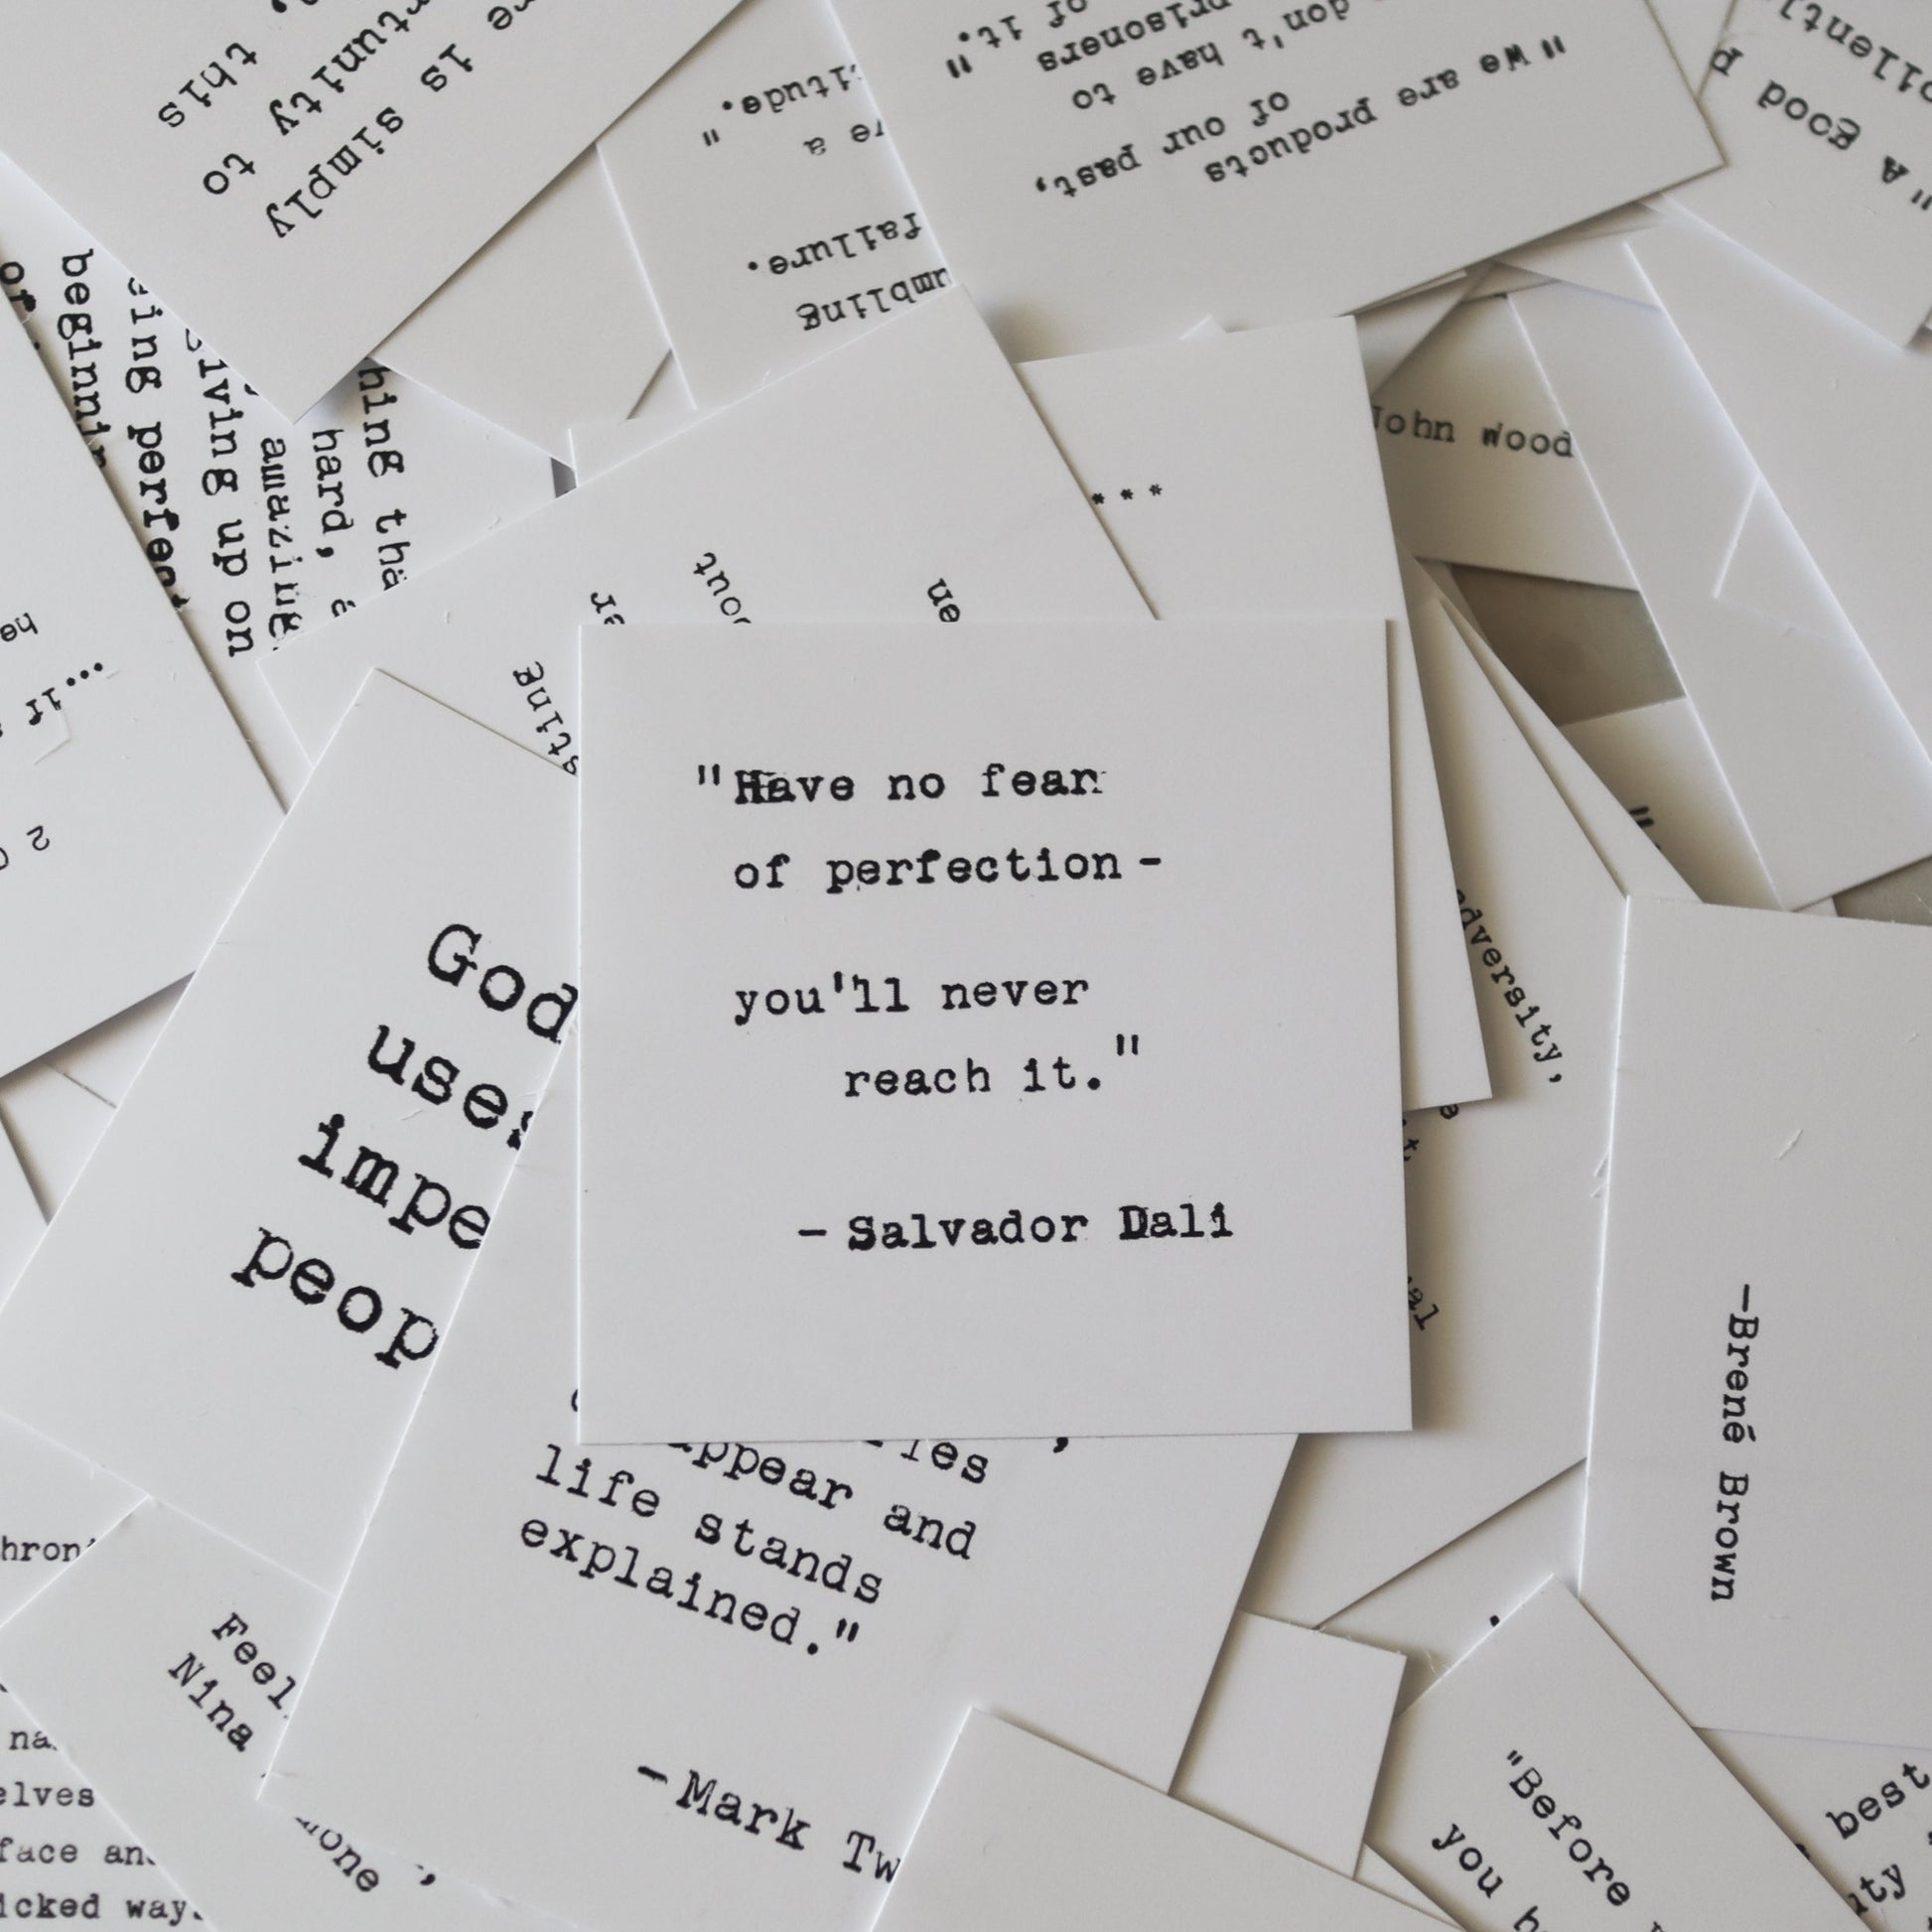 this
rtunity to
is simply
itude."
re a
failure.
umbling
"We are products
of our past,
don't have to
prisoners
of it."
"A good p
John Wood
***
beginnin
ing perfect
giving up on
amazing
hard, a
hing tha
he
...if
2
out
en
sting
"Have no fear
of perfection -
you'll never
reach it."
- Salvador Dali
God
uses
impe
peop
adversity,
-Brené Brown
appear and
life stands
explained."
- Mark Tw
Feel
Nina
elves
face an
icked way
one
"Before
you h
best